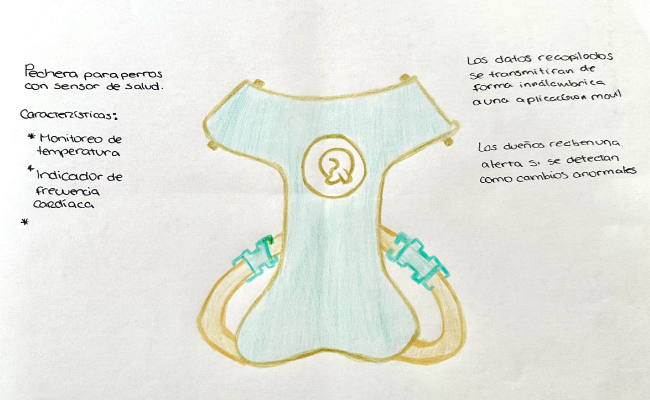 Pechera para perros
con sensor de salud.
Características:
* Monitoreo de
temperatura
* Indicador de
frecuencia
cardíaca
*
Los datos recopilados
se transmitiran de
forma inalambrica
a una aplicacion movil
Los dueños reciben una
alerta si se detectan
como cambios anormales